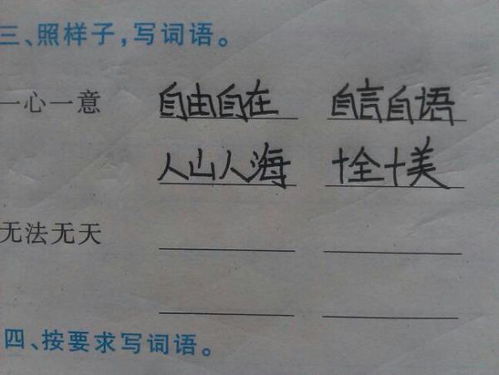 三、照样子,写词语。
一心一意 自由自在 自言自语
人山人海 十全十美
无法无天
四、按要求写词语。